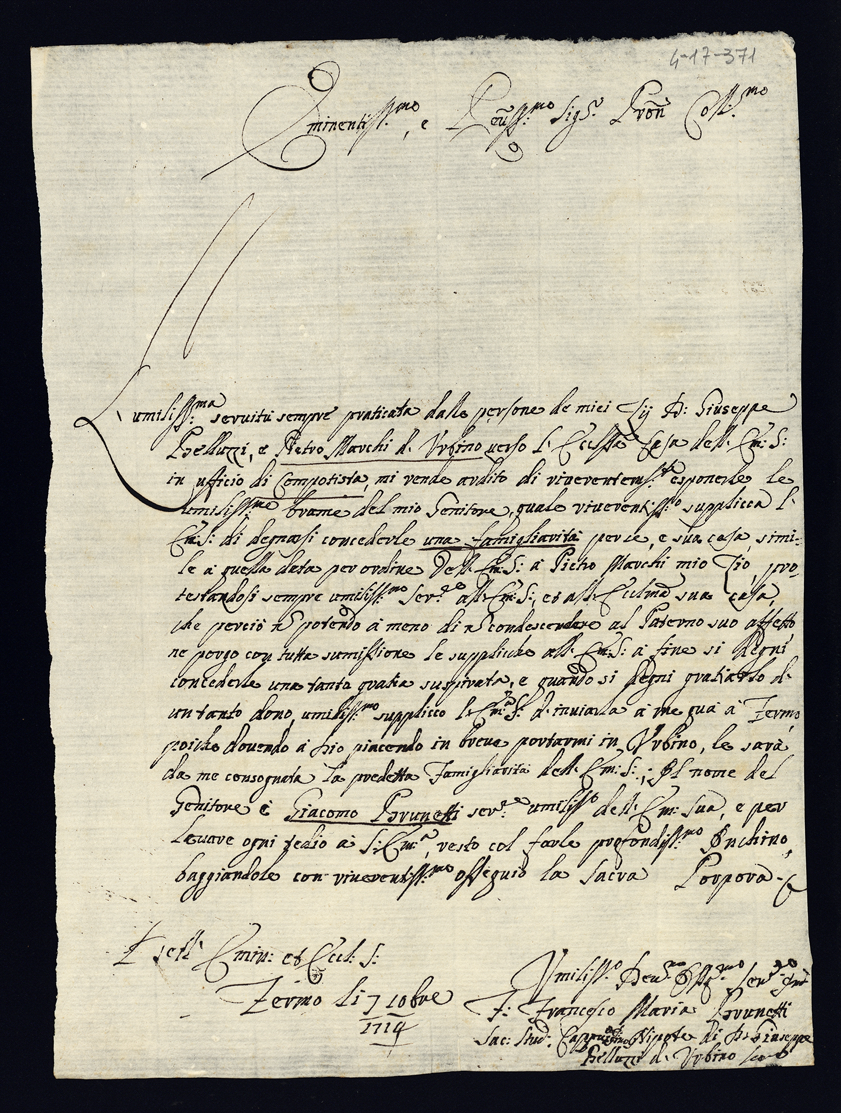 4-17-371
Eminentiss.mo, e Reũss.mo Sig.r Pron Coll.mo
L'umiliss.ma servitù sempre praticata dalle persone de miei Zij D: Giuseppe
Belluzzi, e Pietro Marchi d'Urbino verso l'Eccllma Casa dell'Em: S:
in ufficio di Compotista, mi rende ardito di riverentem.te esponerle le
umilissime brame del mio Genitore, quale riverentiss.o supplicca l'
Em: S: di degnarsi concederle una famigliarità per se, e sua casa, simi-
le a quella data per ordine dell'Em: S: a Pietro Marchi mio Zio, pro-
testandosi sempre umiliss.mo ser.re all'Em: S:, et all'Eccllma sua Casa,
che perciò nõ potendo a meno di nõ condescendere al Paterno suo affetto,
ne porgo con tutta sumissione le suppliche all'Em: S: a fine si degni
concederle una tanta gratia suspirata, e quando si degni gratiarlo d'
un tanto dono, umiliss.mo supplicco l'Em: S: d'inviarla a me quà a Fermo,
poiche dovendo a Dio piacendo in breve portarmi in Urbino, le sarà
da me consegnata la predetta Famigliarità dell'Em: S:; Il nome del
Genitore è Giacomo Brunetti ser.re umiliss.o dell'Em: Sua, e per
levare ogni tedio a S: Em.a, resto col farle profondiss.mo Inchino,
baggiandole con riverentiss.mo ossequio la Sacra Porpora.
Dell' Emin: et Eccl: S:
Fermo li 7 10bre
1714
Umiliss.o Dev.mo Obl.mo Ser.re
F: Francesco Maria Brunetti
Sac: Stud: Cappuccino Nipote di D: Giuseppe
Belluzzi d'Urbino